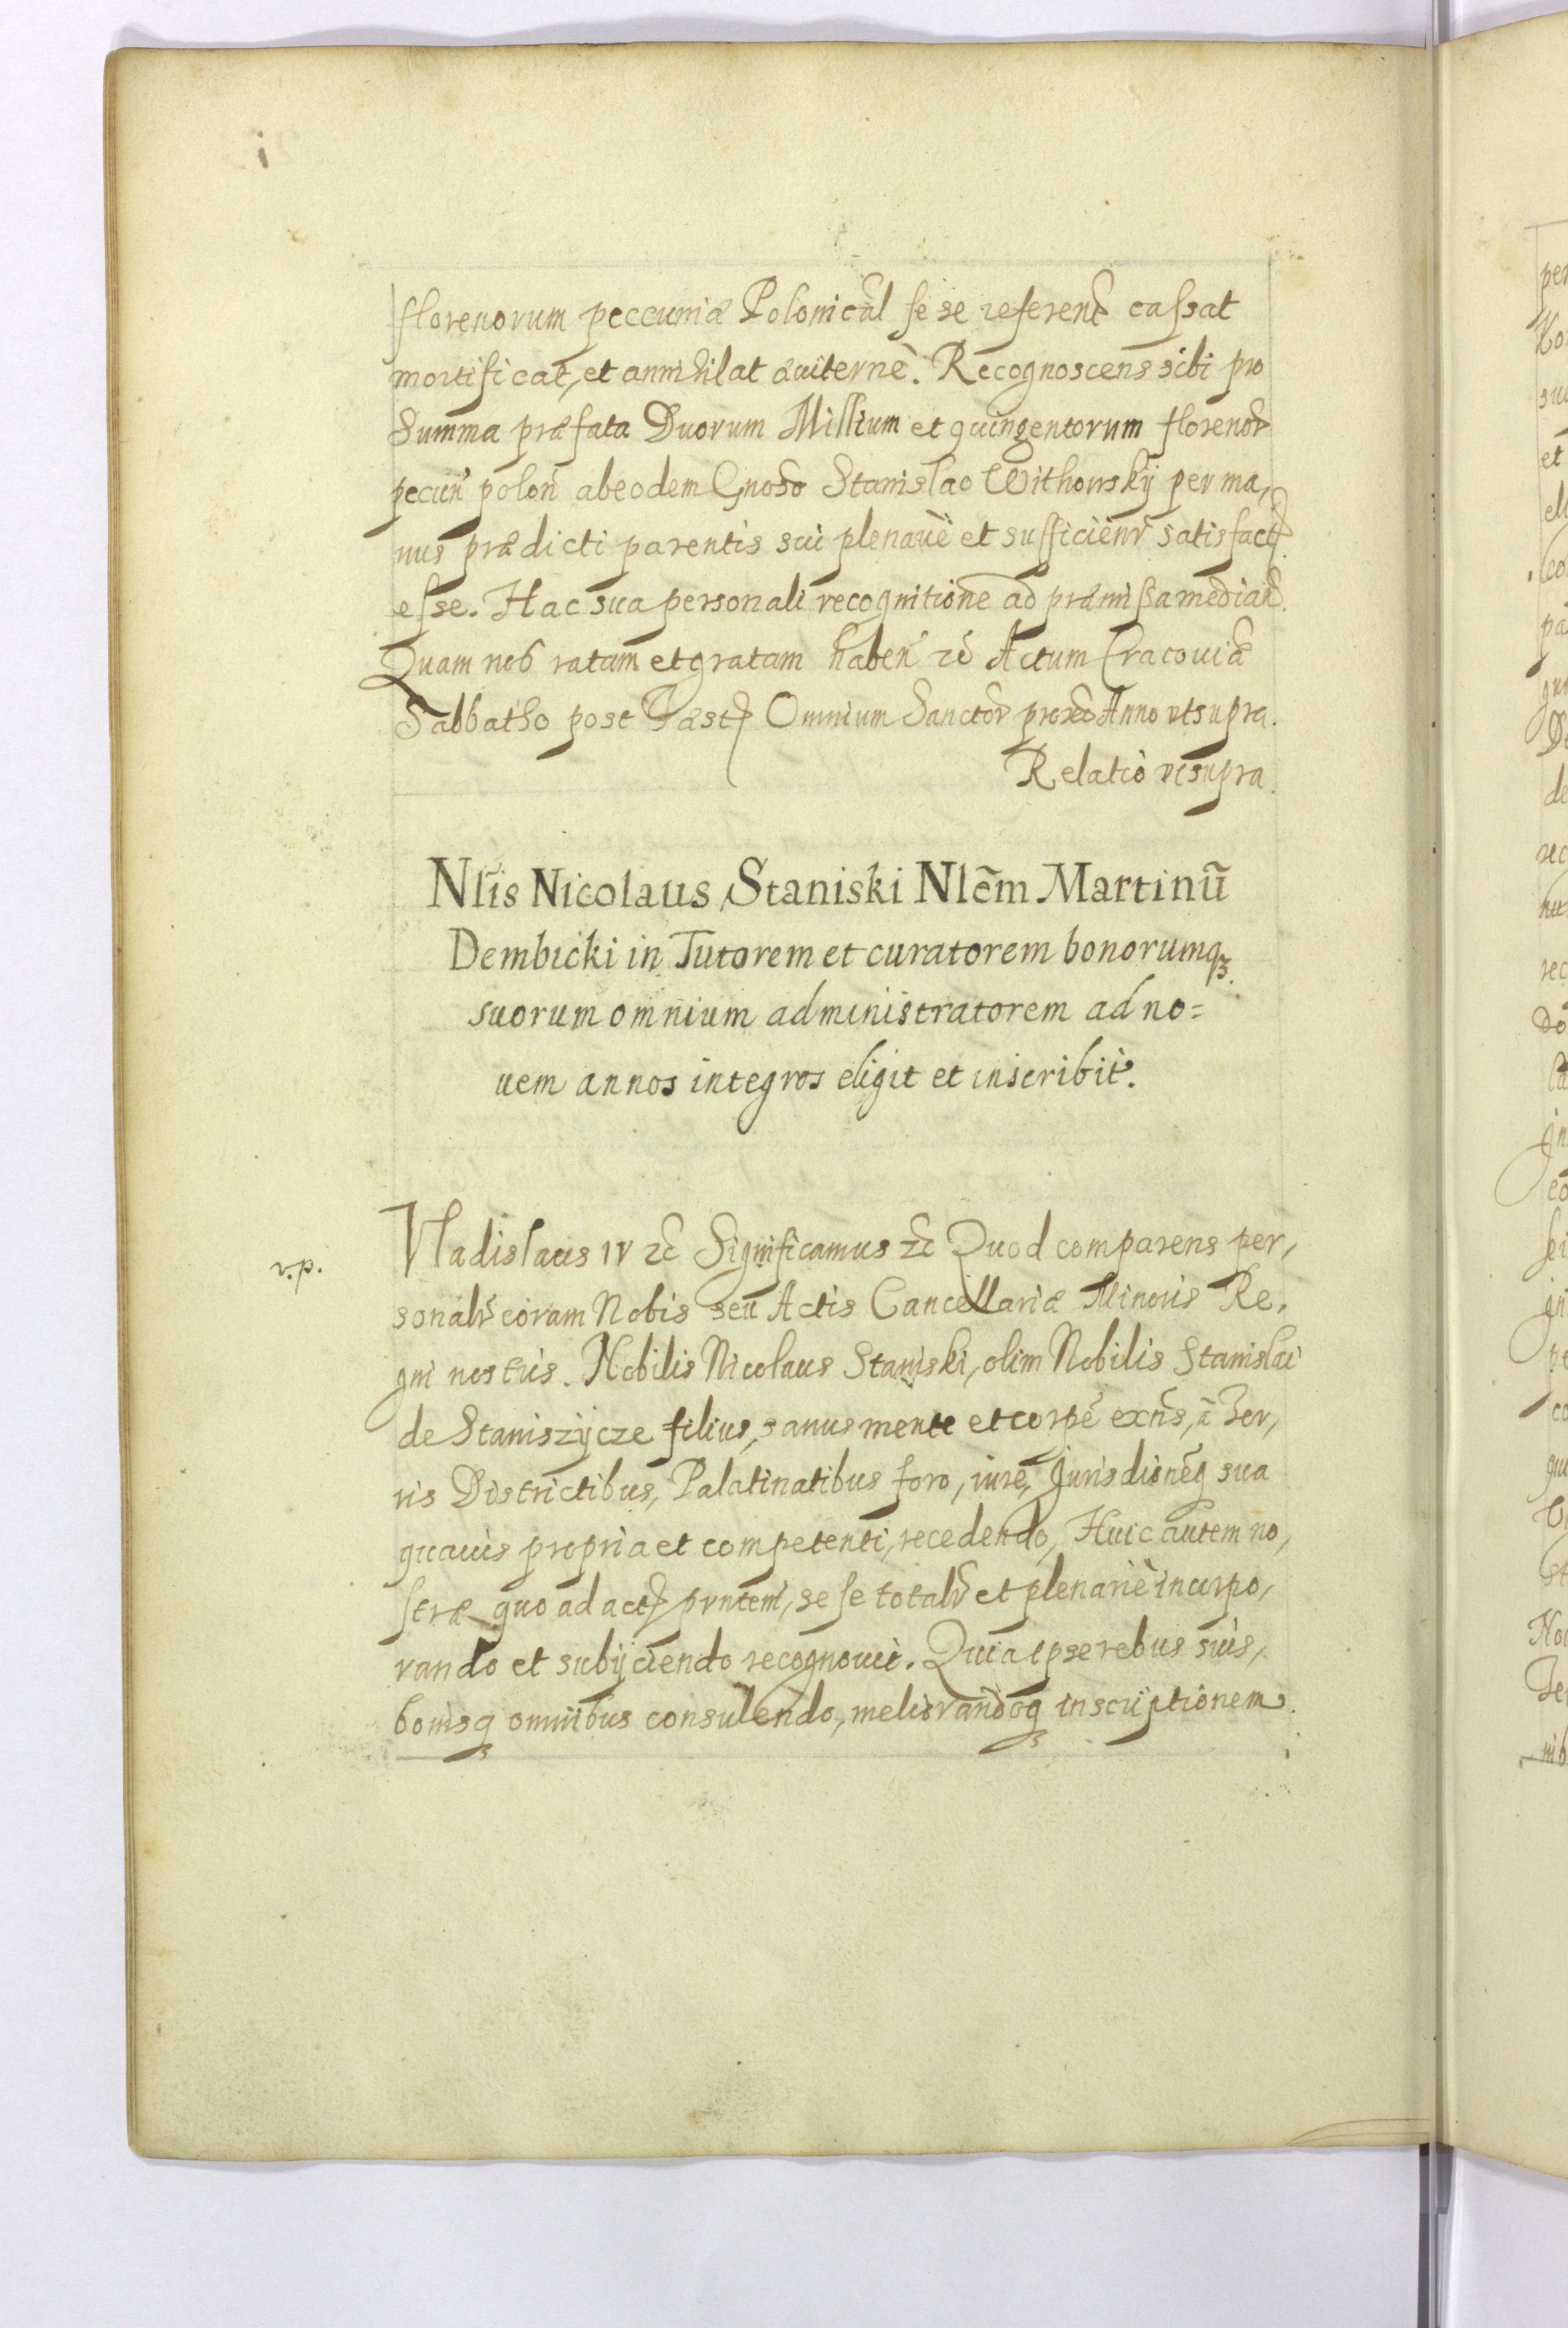 florenorum peccuniæ Polonical sese referent cassat
mortificat, et annihilat æviternè. Recognoscens sibi pro
Summa præfata Duorum Millium et quingentorum floreno℟
pecun̄ polon̄ ab eodem Gnoso Stanislao Withowskÿ per ma,
nus prædicti parentis sui plenariè et sufficienr̃ satisfact
esse. Hac sua personali recognitione ad præmissa median̄.
Quam nos ratam et gratam haben̄ ꝛc̃ Actum Cracouiæ
Sabbatho post Fæst Omnium Sancto℟ proxō Anno vt supra.
Relatio vt supra.
Nlĩs Nicolaus Staniski Nlẽm Martinũ
Dembicki in Tutorem et curatorem bonorumqꝫ
suorum omnium administratorem ad no=
uem annos integros eligit et inscribit.
v.p.
Vladislaus IV ꝛc̃ Significamus ꝛc̃ Quod comparens per,
sonalr̃ coram Nobis seu Actis Cancellariæ Minoris Re,
gni nostris. Nobilis Nicolaus Staniski, olim Nobilis Stanislai
de Staniszÿcze filius, sanus mente et corpẽ exñs, à Ter,
ris Districtibus, Palatinatibus foro, iurẽ, Jurisdionẽqꝫ sua
quauis propria et competenti, recedendo, Huic autem no,
stræ quo ad act prntem, sese totalr̃ et plenariè incorpo,
rando et subijciendo recognouit. Quia ipse rebus suis,
bonisqꝫ omnibus consulendo, meliorandoqꝫ inscriptionem